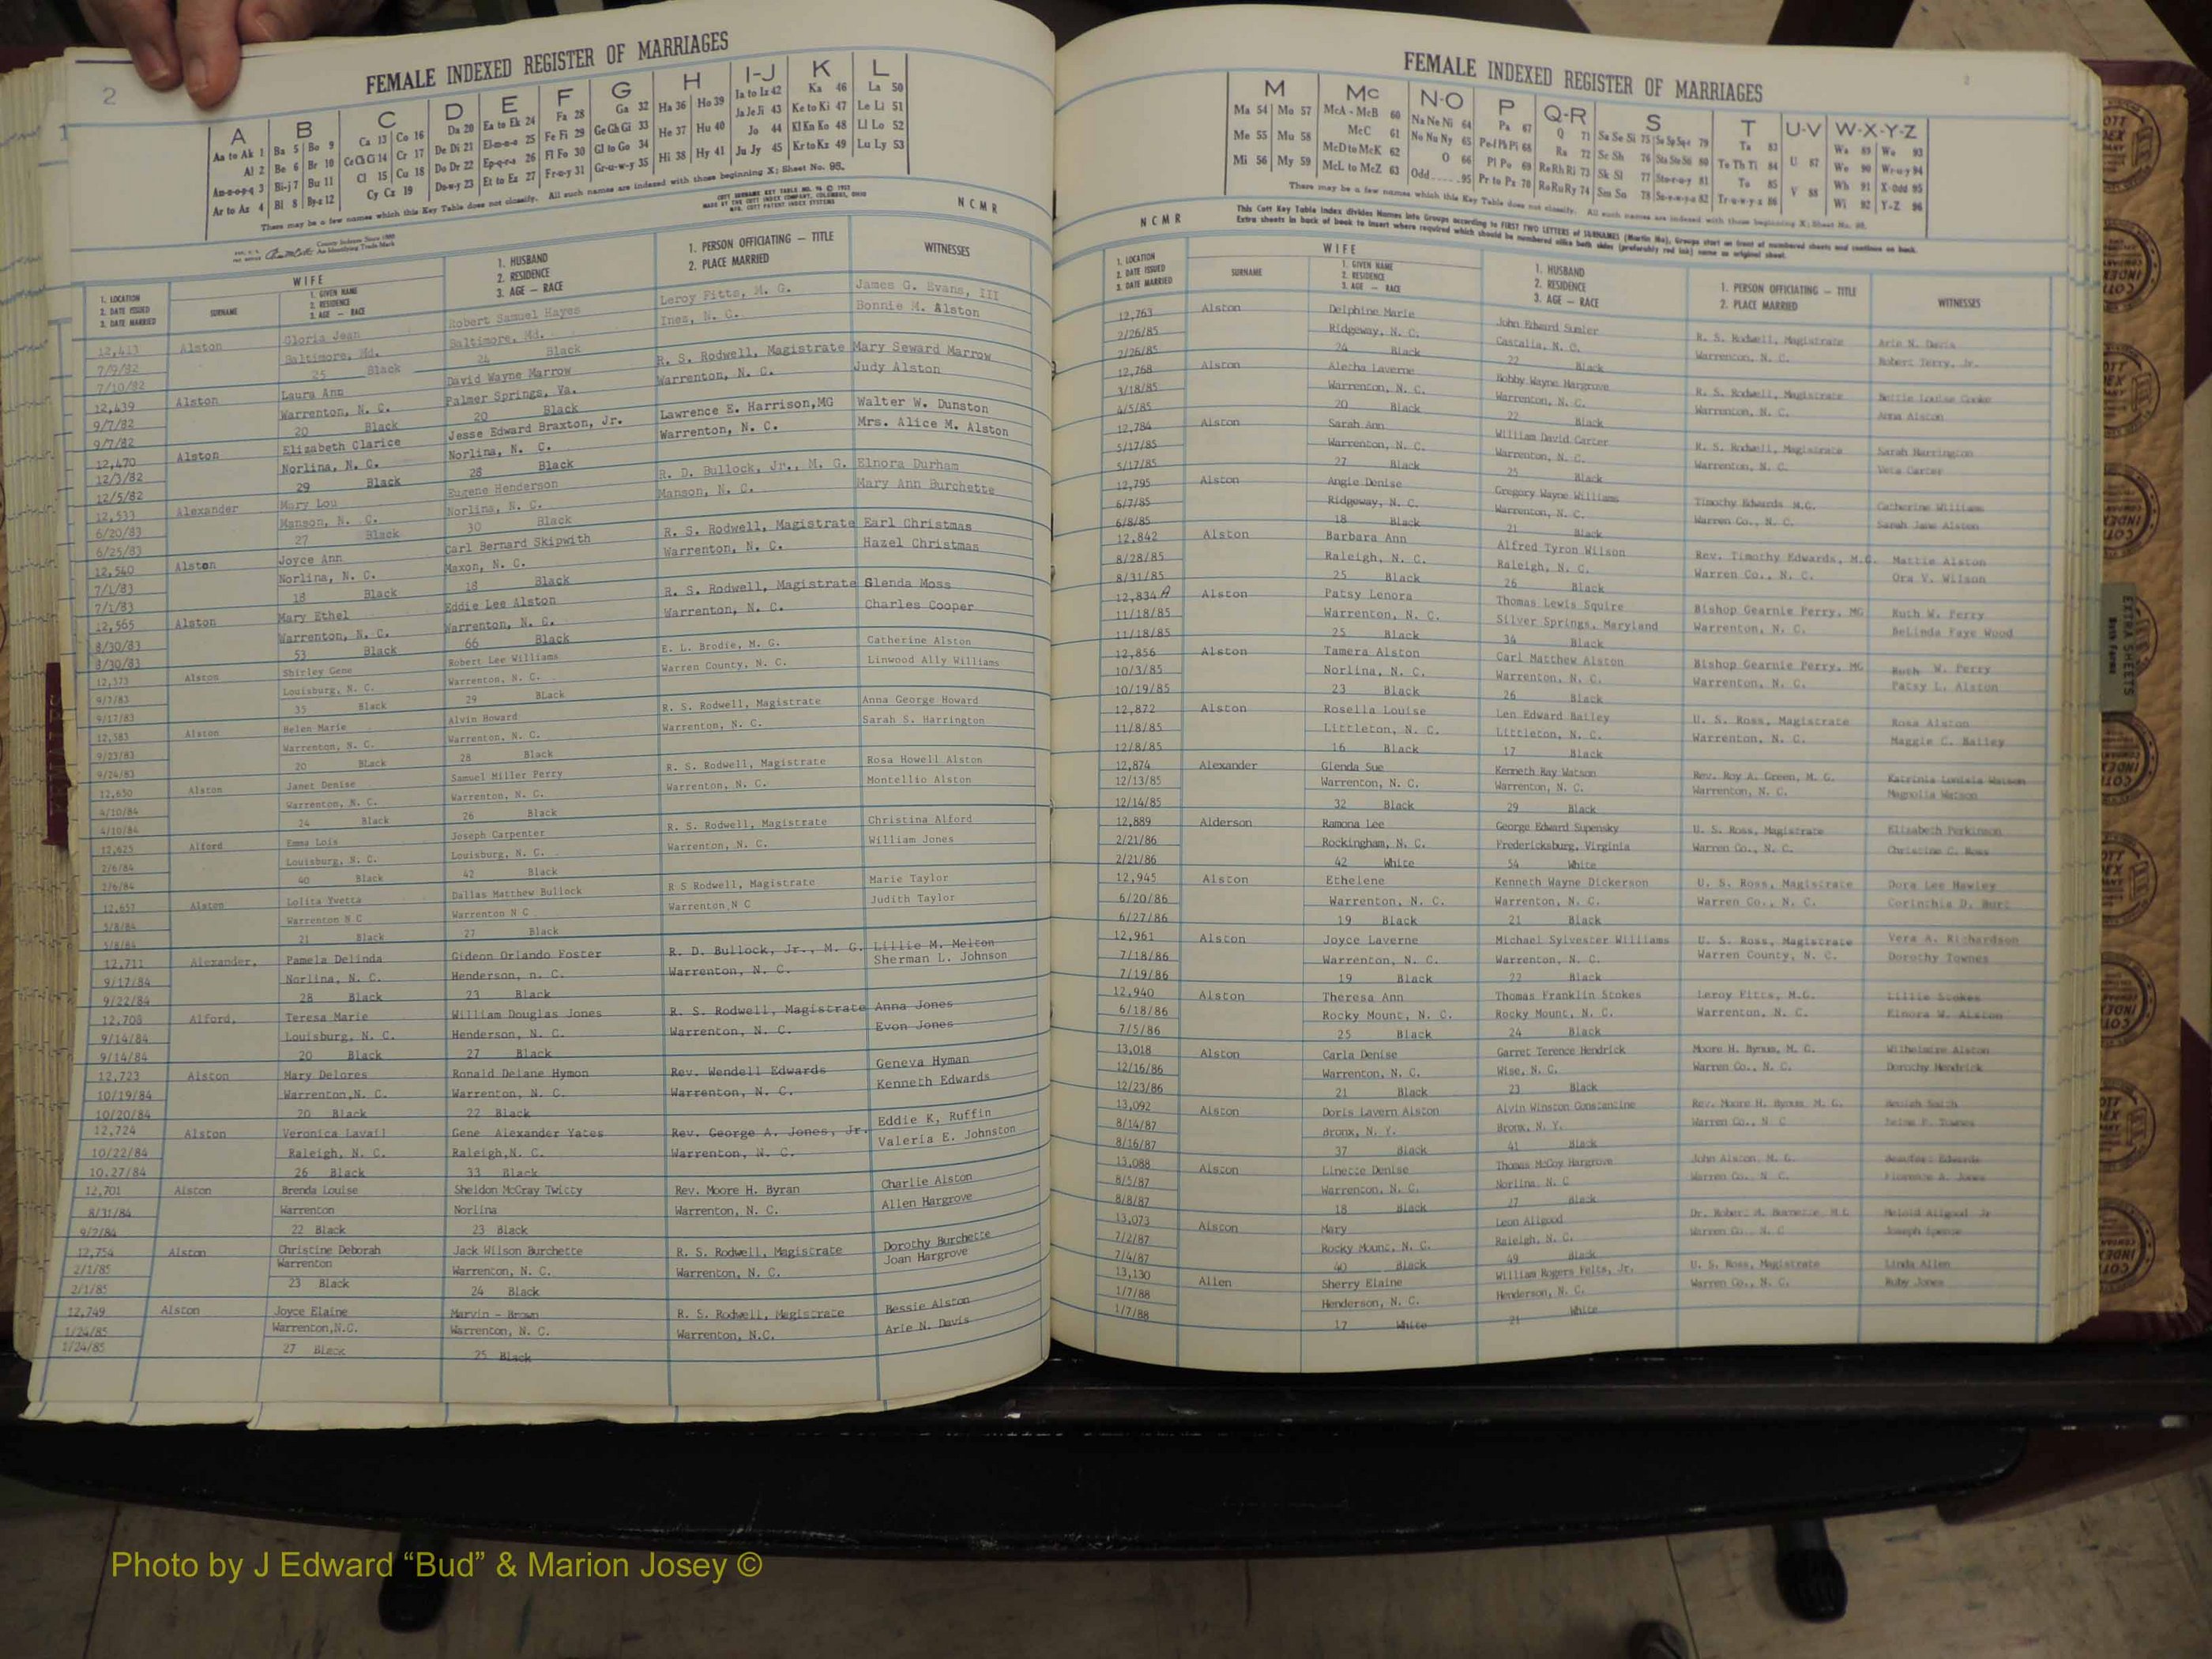 FEMALE INDEXED REGISTER OF MARRIAGES
2
A B C D E F G H I-J K L
Aa to Ak 1 Ba 5 Bo 9 Ca 13 Co 16 Da 20 Ea to Ek 24 Fa 28 Ga 32 Ha 36 Ho 39 Ia to Iz 42 Ka 46 La 50
Al 2 Be 6 Br 10 Ce Ch Ci 14 Cr 17 De Di 21 El-m-n-o 25 Fe Fi 29 Ge Gh Gi 33 He 37 Hu 40 Ja Je Ji 43 Ke to Ki 47 Le Li 51
An-n-o-p-q 3 Bi-j 7 Bu 11 Cl 15 Cu 18 Do Dr 22 Ep-q-r-s 26 Fl Fo 30 Gl to Go 34 Hi 38 Hy 41 Jo 44 Kl Kn Ko 48 Ll Lo 52
Ar to Az 4 Bl 8 By-z 12 Cy Cz 19 Du-w-y 23 Et to Ez 27 Fr-u-y 31 Gr-u-w-y 35 Ju Jy 45 Kr to Kz 49 Lu Ly 53
There may be a few names which this Key Table does not classify. All such names are indexed with those beginning X; Sheet No. 95.
NCMR
1. LOCATION
2. DATE ISSUED
3. DATE MARRIED
WIFE
SURNAME
1. GIVEN NAME
2. RESIDENCE
3. AGE — RACE
1. HUSBAND
2. RESIDENCE
3. AGE — RACE
1. PERSON OFFICIATING — TITLE
2. PLACE MARRIED
WITNESSES
12,413 Alston Gloria Jean Robert Samuel Hayes Leroy Fitts, M. G. James G. Evans, III
7/9/82 Baltimore, Md. Baltimore, Md. Inez, N. C. Bonnie M. Alston
7/10/82 25 Black 24 Black
12,439 Alston Laura Ann David Wayne Marrow R. S. Rodwell, Magistrate Mary Seward Marrow
9/7/82 Warrenton, N. C. Palmer Springs, Va. Warrenton, N. C. Judy Alston
9/7/82 20 Black 20 Black
12,470 Alston Elizabeth Clarice Jesse Edward Braxton, Jr. Lawrence E. Harrison,MG Walter W. Dunston
12/3/82 Norlina, N. C. Norlina, N. C. Warrenton, N. C. Mrs. Alice M. Alston
12/5/82 29 Black 28 Black
12,533 Alexander Mary Lou Eugene Henderson R. D. Bullock, Jr., M. G. Elnora Durham
6/20/83 Manson, N. C. Norlina, N. C. Manson, N. C. Mary Ann Burchette
6/25/83 27 Black 30 Black
12,540 Alston Joyce Ann Carl Bernard Skipwith R. S. Rodwell, Magistrate Earl Christmas
7/1/83 Norlina, N. C. Maxon, N. C. Warrenton, N. C. Hazel Christmas
7/1/83 18 Black 18 Black
12,565 Alston Mary Ethel Eddie Lee Alston R. S. Rodwell, Magistrate Glenda Moss
8/30/83 Warrenton, N. C. Warrenton, N. C. Warrenton, N. C. Charles Cooper
8/30/83 53 Black 66 Black
12,573 Alston Shirley Gene Robert Lee Williams E. L. Brodie, M. G. Catherine Alston
9/7/83 Louisburg, N. C. Warrenton, N. C. Warren County, N. C. Linwood Ally Williams
9/17/83 35 Black 29 BLack
12,583 Alston Helen Marie Alvin Howard R. S. Rodwell, Magistrate Anna George Howard
9/23/83 Warrenton, N. C. Warrenton, N. C. Warrenton, N. C. Sarah S. Harrington
9/24/83 20 BLack 28 Black
12,650 Alston Janet Denise Samuel Miller Perry R. S. Rodwell, Magistrate Rosa Howell Alston
4/10/84 Warrenton, N. C. Warrenton, N. C. Warrenton, N. C. Montellio Alston
4/10/84 24 Black 26 Black
12,625 Alford Emma Lois Joseph Carpenter R. S. Rodwell, Magistrate Christina Alford
2/6/84 Louisburg, N. C. Louisburg, N. C. Warrenton, N. C. William Jones
2/6/84 40 Black 42 Black
12,657 Alston Lolita Yvetta Dallas Matthew Bullock R S Rodwell, Magistrate Marie Taylor
5/8/84 Warrenton N C Warrenton N C Warrenton N C Judith Taylor
5/8/84 21 Black 27 Black
12,711 Alexander, Pamela Delinda Gideon Orlando Foster R. D. Bullock, Jr., M. G. Lillie M. Melton
9/17/84 Norlina, N. C. Henderson, n. C. Warrenton, N. C. Sherman L. Johnson
9/22/84 28 Black 23 Black
12,708 Alford, Teresa Marie William Douglas Jones R. S. Rodwell, Magistrate Anna Jones
9/14/84 Louisburg, N. C. Henderson, N. C. Warrenton, N. C. Evon Jones
9/14/84 20 Black 27 Black
12,723 Alston Mary Delores Ronald Delane Hymon Rev. Wendell Edwards Geneva Hyman
10/19/84 Warrenton,N. C. Warrenton, N. C. Warrenton, N. C. Kenneth Edwards
10/20/84 20 Black 22 Black
12,724 Alston Veronica Lavail Gene Alexander Yates Rev. George A. Jones, Jr. Eddie K, Ruffin
10/22/84 Raleigh, N. C. Raleigh,N. C. Warrenton, N. C. Valeria E. Johnston
10.27/84 26 Black 33 Black
12,701 Alston Brenda Louise Sheldon McCray Twitty Rev. Moore H. Byran Charlie Alston
8/31/84 Warrenton Norlina Warrenton, N. C. Allen Hargrove
9/2/84 22 Black 23 Black
12,754 Alston Christine Deborah Jack Wilson Burchette R. S. Rodwell, Magistrate Dorothy Burchette
2/1/85 Warrenton Warrenton, N. C. Warrenton, N. C. Joan Hargrove
2/1/85 23 Black 24 Black
12,749 Alston Joyce Elaine Marvin - Brown R. S. Rodwell, Magistrate Bessie Alston
1/24/85 Warrenton,N.C. Warrenton, N. C. Warrenton, N.C. Arie N. Davis
1/24/85 27 Black 25 Black
FEMALE INDEXED REGISTER OF MARRIAGES
M Mc N-O P Q-R S T U-V W-X-Y-Z
Ma 54 Mo 57 McA - McB 60 Na Ne Ni 64 Pa 67 Q 71 Sa Se Si 75 So Sp Sq-r 79 Ta 83 U 87 Wa 89 Wo 93
Me 55 Mu 58 McC 61 No Nu Ny 65 Pe-f Ph Pi 68 Ra 72 Sc Sh 76 Sta Ste Sti 80 Te Th Ti 84 V 88 We 90 Wr-u-y 94
Mi 56 My 59 McD to McK 62 O 66 Pl Po 69 Re Rh Ri 73 Sk Sl 77 Sto-r-u-y 81 To 85 Wh 91 X-Odd 95
McL to McZ 63 Odd 95 Pr to Pz 70 Ro Ru Ry 74 Sm Sn 78 Su-v-w-y-z 82 Tr-u-w-y-z 86 Wi 92 Y-Z 96
There may be a few names which this Key Table does not classify. All such names are indexed with those beginning X; Sheet No. 95.
This Cott Key Table Index divides Names into Groups according to FIRST TWO LETTERS of SURNAMES (Martin Ma), Groups start on front of numbered sheets and continue on back.
Extra sheets in back of book to insert where required which should be numbered alike both sides (preferably red ink) same as original sheet.
NCMR
1. LOCATION
2. DATE ISSUED
3. DATE MARRIED
WIFE
SURNAME
1. GIVEN NAME
2. RESIDENCE
3. AGE — RACE
1. HUSBAND
2. RESIDENCE
3. AGE — RACE
1. PERSON OFFICIATING — TITLE
2. PLACE MARRIED
WITNESSES
12,763 Alston Delphine Marie John Edward Sumler R. S. Rodwell, Magistrate Arie N. Davis
2/26/85 Ridgeway, N. C. Castalia, N. C. Warrenton, N. C. Robert Terry, Jr.
2/26/85 24 Black 22 Black
12,768 Alston Aletha Laverne Bobby Wayne Hargrove R. S. Rodwell, Magistrate Bettie Louise Cooke
3/18/85 Warrenton, N. C. Warrenton, N. C. Warrenton, N. C. Anna Alston
4/5/85 20 Black 22 Black
12,784 Alston Sarah Ann William David Carter R. S. Rodwell, Magistrate Sarah Harrington
5/17/85 Warrenton, N. C. Warrenton, N. C. Warrenton, N. C. Veta Carter
5/17/85 27 Black 25 Black
12,795 Alston Angie Denise Gregory Wayne Williams Timothy Edwards M.G. Catherine Williams
6/7/85 Ridgeway, N. C. Warrenton, N. C. Warren Co., N. C. Sarah Jane Alston
6/8/85 18 Black 21 Black
12,842 Alston Barbara Ann Alfred Tyron Wilson Rev. Timothy Edwards, M.G. Mattie Alston
8/28/85 Raleigh, N. C. Raleigh, N. C. Warren Co., N. C. Ora V. Wilson
8/31/85 25 Black 26 Black
12,834A Alston Patsy Lenora Thomas Lewis Squire Bishop Gearnie Perry, MG Ruth W. Perry
11/18/85 Warrenton, N. C. Silver Springs, Maryland Warrenton, N. C. BeLinda Faye Wood
11/18/85 25 Black 34 Black
12,856 Alston Tamera Alston Carl Matthew Alston Bishop Gearnie Perry, MG Ruth W. Perry
10/3/85 Norlina, N. C. Warrenton, N. C. Warrenton, N. C. Patsy L. Alston
10/19/85 23 Black 26 Black
12,872 Alston Rosella Louise Len Edward Bailey U. S. Ross, Magistrate Rosa Alston
11/8/85 Littleton, N. C. Littleton, N. C. Warrenton, N. C. Maggie C. Bailey
12/8/85 16 Black 17 Black
12,874 Alexander Glenda Sue Kenneth Ray Watson Rev. Roy A. Green, M. G. Katrinia Louisia Watson
12/13/85 Warrenton, N. C. Warrenton, N. C. Warrenton, N. C. Magnolia Watson
12/14/85 32 Black 29 Black
12,889 Alderson Ramona Lee George Edward Supensky U. S. Ross, Magistrate Elizabeth Perkinson
2/21/86 Rockingham, N. C. Fredericksburg, Virginia Warren Co., N. C. Christine C. Ross
2/21/86 42 White 54 White
12,945 Alston Ethelene Kenneth Wayne Dickerson U. S. Ross, Magistrate Dora Lee Hawley
6/20/86 Warrenton, N. C. Warrenton, N. C. Warren Co., N. C. Corinthia D. Burt
6/27/86 19 Black 21 Black
12,961 Alston Joyce Laverne Michael Sylvester Williams U. S. Ross, Magistrate Vera A. Richardson
7/18/86 Warrenton, N. C. Warrenton, N. C. Warren County, N. C. Dorothy Townes
7/19/86 19 Black 22 Black
12,940 Alston Theresa Ann Thomas Franklin Stokes Leroy Fitts, M.G. Lillie Stokes
6/18/86 Rocky Mount, N. C. Rocky Mount, N. C. Warrenton, N. C. Elnora W. Alston
7/5/86 25 Black 24 Black
13,018 Alston Carla Denise Garret Terence Hendrick Moore H. Bynum, M. G. Wilhelmire Alston
12/16/86 Warrenton, N. C. Wise, N. C. Warren Co., N. C. Dorothy Hendrick
12/23/86 21 Black 23 Black
13,092 Alston Doris Lavern Alston Alvin Winston Constantine Rev. Moore H. Bynum M. G. Beulah Smith
8/14/87 Bronx, N. Y. Bronx, N. Y. Warren Co., N. C
8/16/87 37 Black 41 Black
13,088 Alston Linette Denise Thomas McCoy Hargrove John Alston, M. G. Edwards
8/5/87 Warrenton, N. C. Norlina, N. C Warren Co., N. C. Florence A. Jones
8/8/87 18 Black 27 Black
13,073 Alston Mary Leon Allgood Jr
7/2/87 Rocky Mount, N. C. Raleigh, N. C. Warren Co., N. C Joseph
7/4/87 40 Black 49 Black
13,130 Allen Sherry Elaine William Rogers Felts, Jr. U. S. Ross, Magistrate Linda Allen
1/7/88 Henderson, N. C. Henderson, N. C. Warren Co., N. C. Ruby Jones
1/7/88 17 White 21 White
EXTRA SHEETS
Photo by J Edward “Bud” & Marion Josey ©